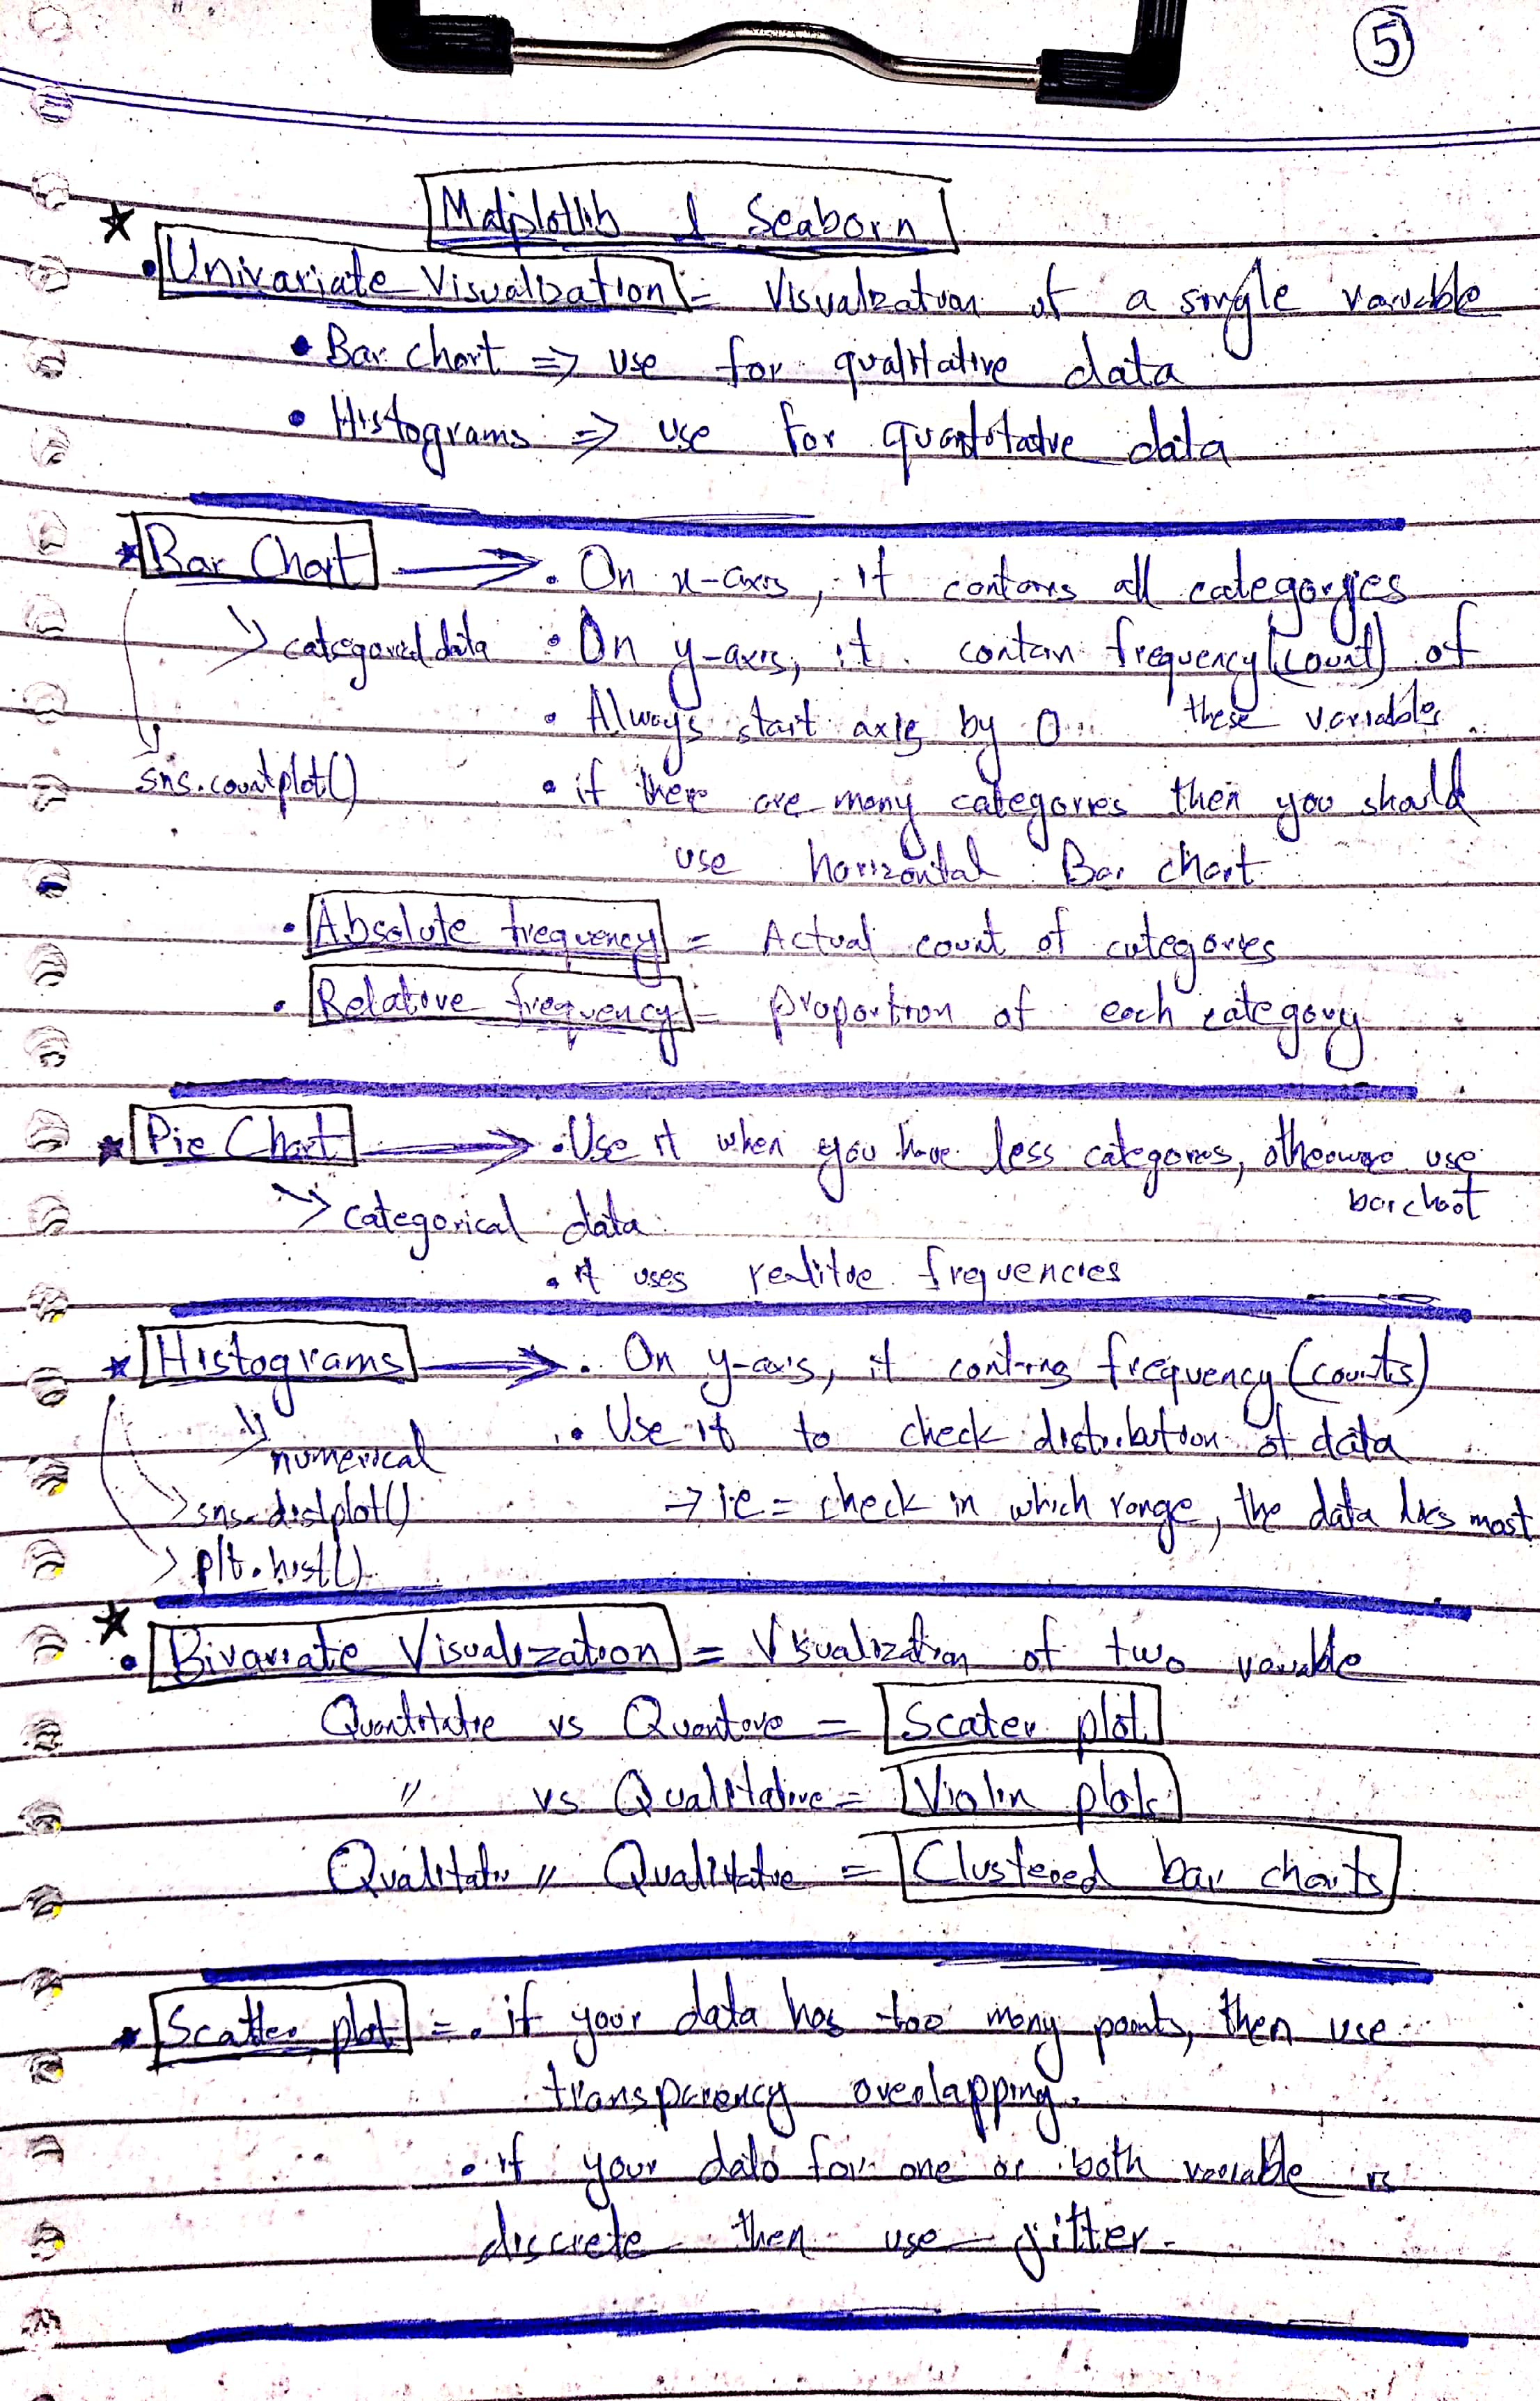 5
Matplotlib & Seaborn
• Univariate Visualization = Visualization of a single variable
• Bar chart => use for qualitative data
• Histograms => use for quantitative data
Bar Chart → • On x-axis, it contains all categories
categorical data • On y-axis, it contain frequency (count) of
these variables
• Always start axis by 0
sns.countplot() • if there are many categories then you should
use horizontal Bar chart
• Absolute frequency = Actual count of categories
• Relative frequency = proportion of each category
Pie Chart → • Use it when you have less categories, otherwise use
barchart
categorical data
• it uses realitve frequencies
Histograms → • On y-axis, it contains frequency (counts)
numerical • Use it to check distribution of data
sns.distplot() → i.e = check in which range, the data lies most
plt.hist()
• Bivariate Visualization = Visualization of two variable
Quantitative vs = Scater plot
" vs Qualitative = Violin plots
Qualitative " Qualitative = Clustered bar charts
Scatter plot = • if your data has too many points, then use
transparency overlapping.
• if your data for one or both variable is
discrete then use jitter.